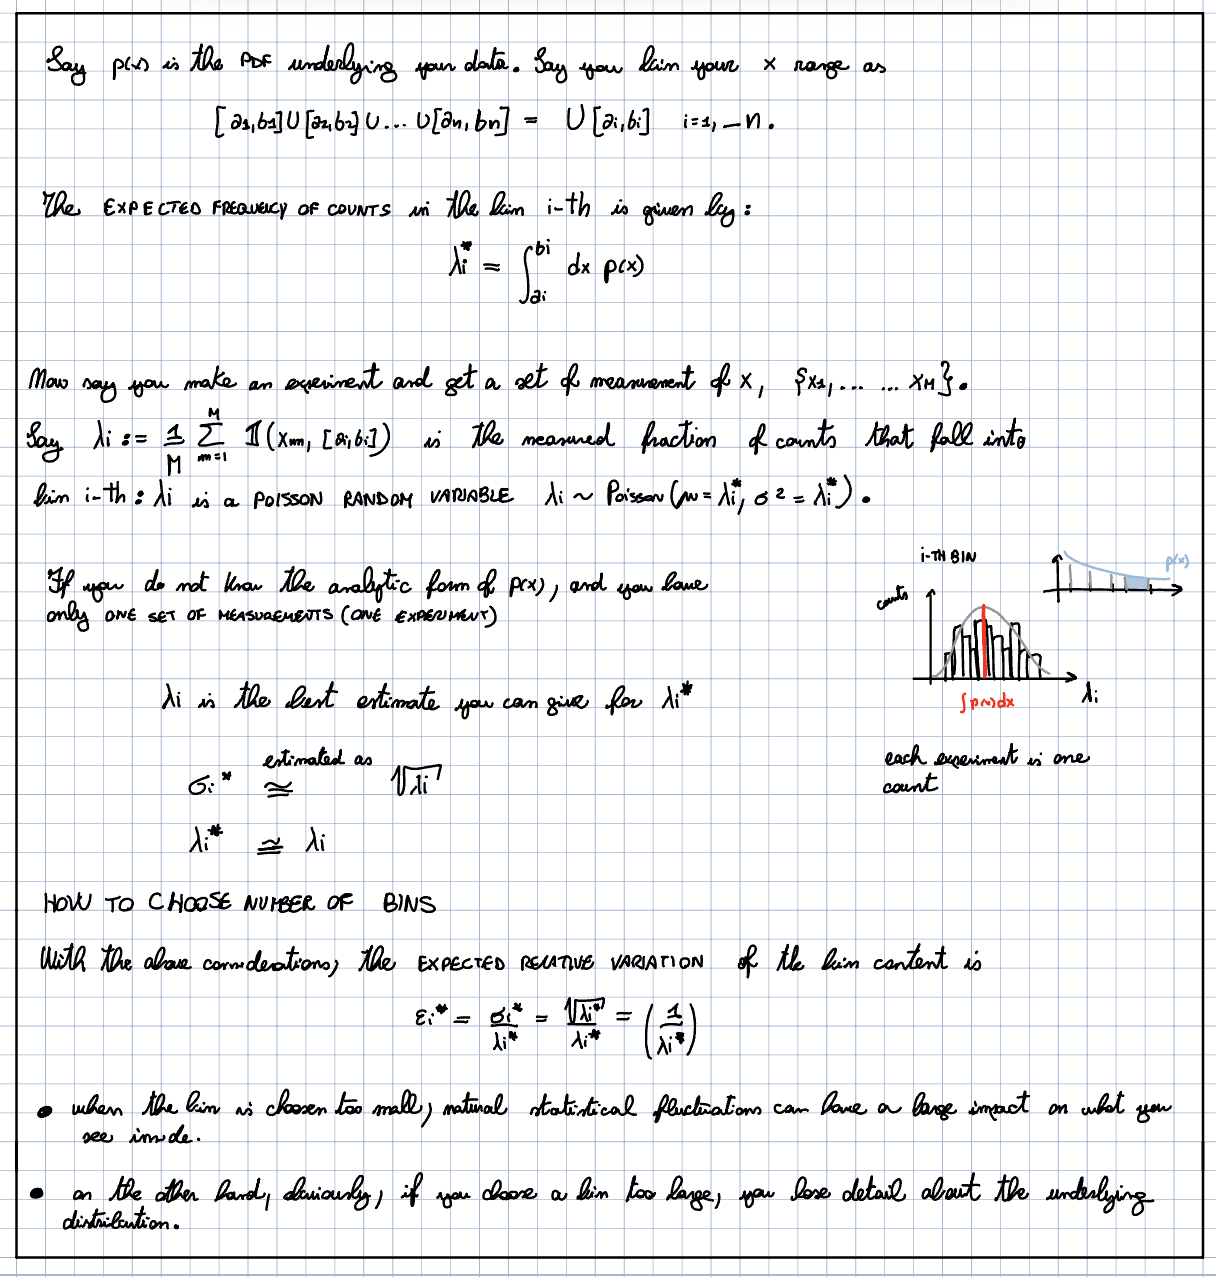 Say p(x) is the PDF underlying your data. Say you bin your x range as
[a1,b1]U[a2,b2]U...U[an,bn] = U[ai,bi] i=1,–n.
The EXPECTED FREQUENCY OF COUNTS in the bin i-th is given by:
λi* = ∫ai^bi dx p(x)
Now say you make an experiment and get a set of measurement of x, {x1,... ... xM}.
Say λi := 1/M Σ_{m=1}^{M} 𝟙(xm, [ai,bi]) is the measured fraction of counts that fall into
bin i-th: λi is a POISSON RANDOM VARIABLE λi ~ Poisson(μ=λi*, σ²=λi*).
i-TH BIN
p(x)
If you do not know the analytic form of p(x), and you have
only ONE SET OF MEASUREMENTS (ONE EXPERIMENT)
counts
λi
∫p(x)dx
λi is the best estimate you can give for λi*
each experiment is one
count
estimated as
σi* ≅ √λi
λi* ≅ λi
HOW TO CHOOSE NUMBER OF BINS
With the above considerations, the EXPECTED RELATIVE VARIATION of the bin content is
εi* = σi*/λi* = √λi*/λi* = (1/λi*)
• when the bin is choosen too small, natural statistical fluctuations can have a large impact on what you
see inside.
• on the other hand, obviously, if you choose a bin too large, you lose detail about the underlying
distribution.